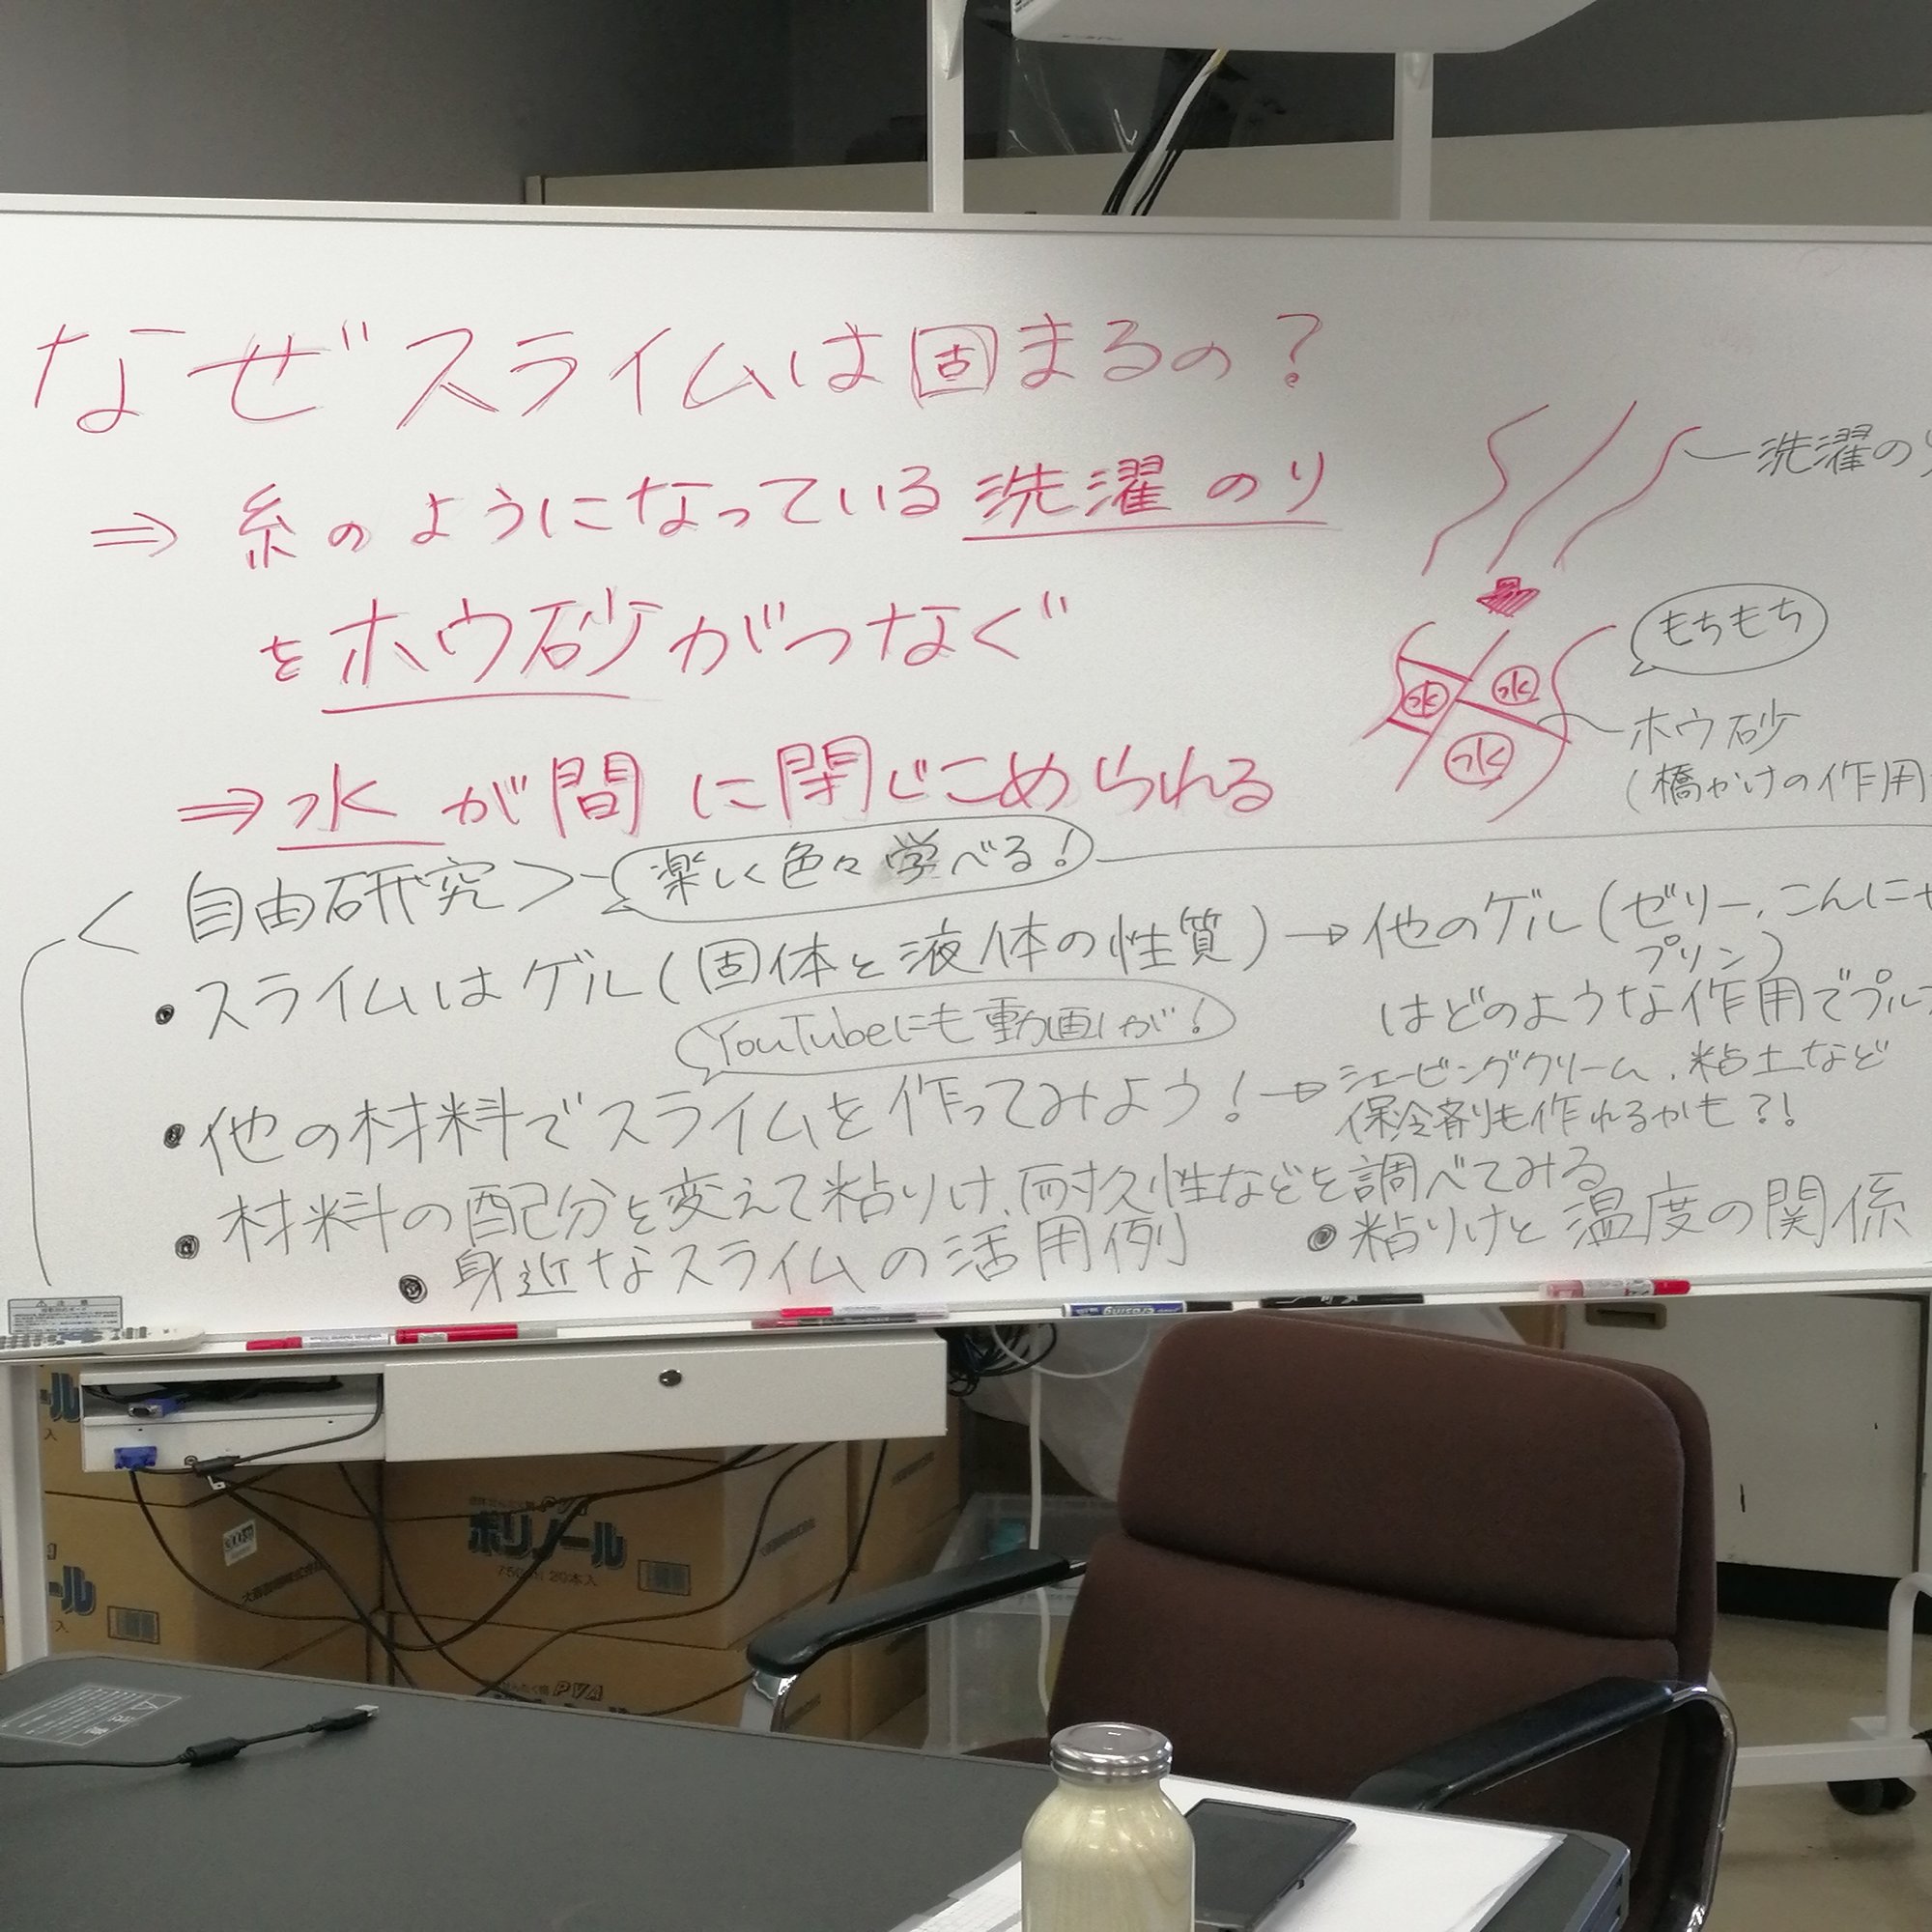 なぜスライムは固まるの?
⇒ 糸のようになっている洗濯のり
をホウ砂がつなぐ
⇒水が間に閉じこめられる
洗濯の
もちもち
水 水
水
ホウ砂
(橋かけの作用
<自由研究>
楽しく色々学べる!
・スライムはゲル(固体と液体の性質)→他のゲル(ゼリー、こんにゃ
プリン)
はどのような作用でプル
YouTubeにも動画が!
・他の材料でスライムを作ってみよう!→シェービングクリーム、粘土など
保冷剤も作れるかも?!
・材料の配分を変えて粘りけ、耐久性などを調べてみる
・身近なスライムの活用例
・粘りけと温度の関係
注意
PVA
ポリノール
750ml 20本入
ール
入
ール
入
PVA